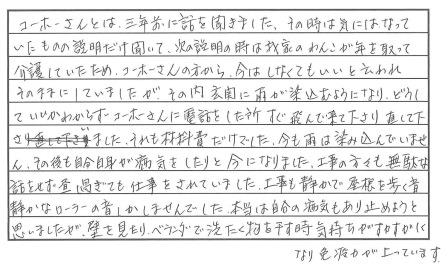 コーホーさんとは、三年前に話を聞きました。その時は気にはなって
いたものの説明だけ聞いて、次の説明の時は我家のわんこが年を取って
介護していたため、コーホーさんの方から、今はしなくてもいいと云われ
そのままにしていましたが、その内玄関に雨が染込むようになり、どうし
ていいかわからずコーホーさんに電話をした所すぐ飛んで来て下さり直して下
さいました。それも材料費だけでした。今も雨は染み込んでいませ
ん。その後も自分自身が病気をしたりと今になりました。工事の方々も無駄な
話をせず昼過ぎでも仕事をされていました。工事も静かで屋根を歩く音
静かなローラーの音しかしませんでした。本当は自分の病気もあり止めようと
思いましたが、壁を見たり、ベランダで洗たく物を干す時気持ちがおだやかに
なり免疫力が上っています。